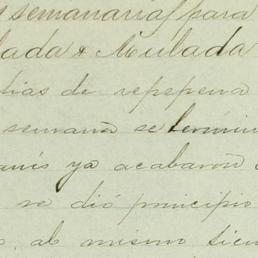 semanarias para
lada & Mulada
dias de repepena
semana se termin
ya acabaron
se dió principio
al mismo tiem